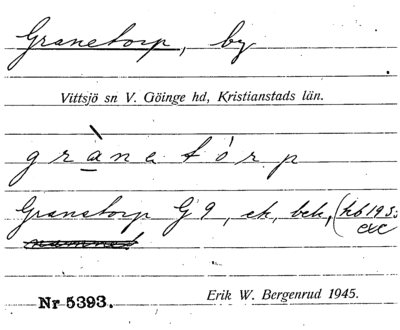 Granetorp, by
Vittsjö sn V. Göinge hd, Kristianstads län.
grànetórp
Granetorp G 9, ek, bek, (hb 193
exc
Erik W. Bergenrud 1945.
Nr 5393.